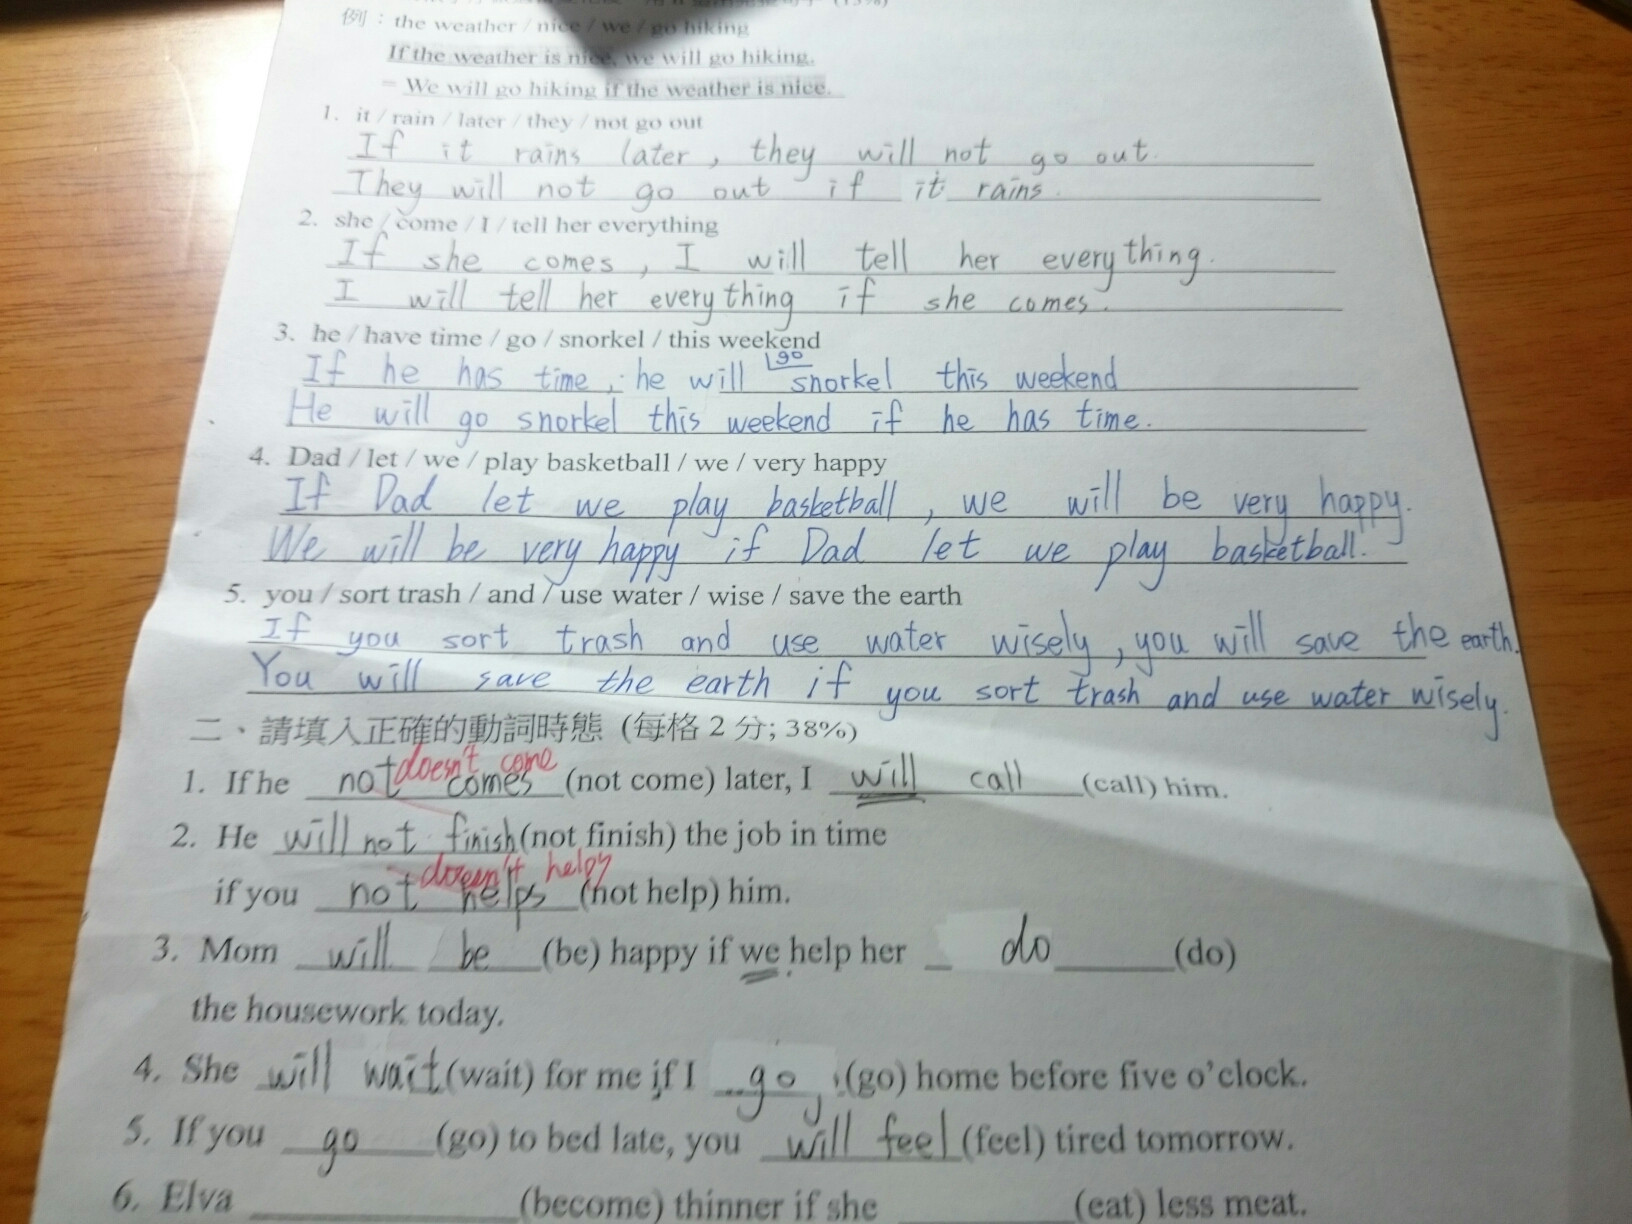 (15%)
例：the weather / nice / we / go hiking
If the weather is nice, we will go hiking.
= We will go hiking if the weather is nice.
1. it / rain / later / they / not go out
If it rains later, they will not go out.
They will not go out if it rains.
2. she / come / I / tell her everything
If she comes, I will tell her everything.
I will tell her everything if she comes.
3. he / have time / go / snorkel / this weekend
go
If he has time, he will snorkel this weekend
He will go snorkel this weekend if he has time.
4. Dad / let / we / play basketball / we / very happy
If Dad let we play basketball, we will be very happy.
We will be very happy if Dad let we play basketball.
5. you / sort trash / and / use water / wise / save the earth
If you sort trash and use water wisely, you will save the earth.
You will save the earth if you sort trash and use water wisely.
二、請填入正確的動詞時態 (每格 2 分; 38%)
doesn't come
1. If he not comes (not come) later, I will call (call) him.
2. He will not finish (not finish) the job in time
doesn't help
if you not helps (not help) him.
3. Mom will be (be) happy if we help her do (do)
the housework today.
4. She will wait (wait) for me if I go (go) home before five o'clock.
5. If you go (go) to bed late, you will feel (feel) tired tomorrow.
6. Elva (become) thinner if she (eat) less meat.